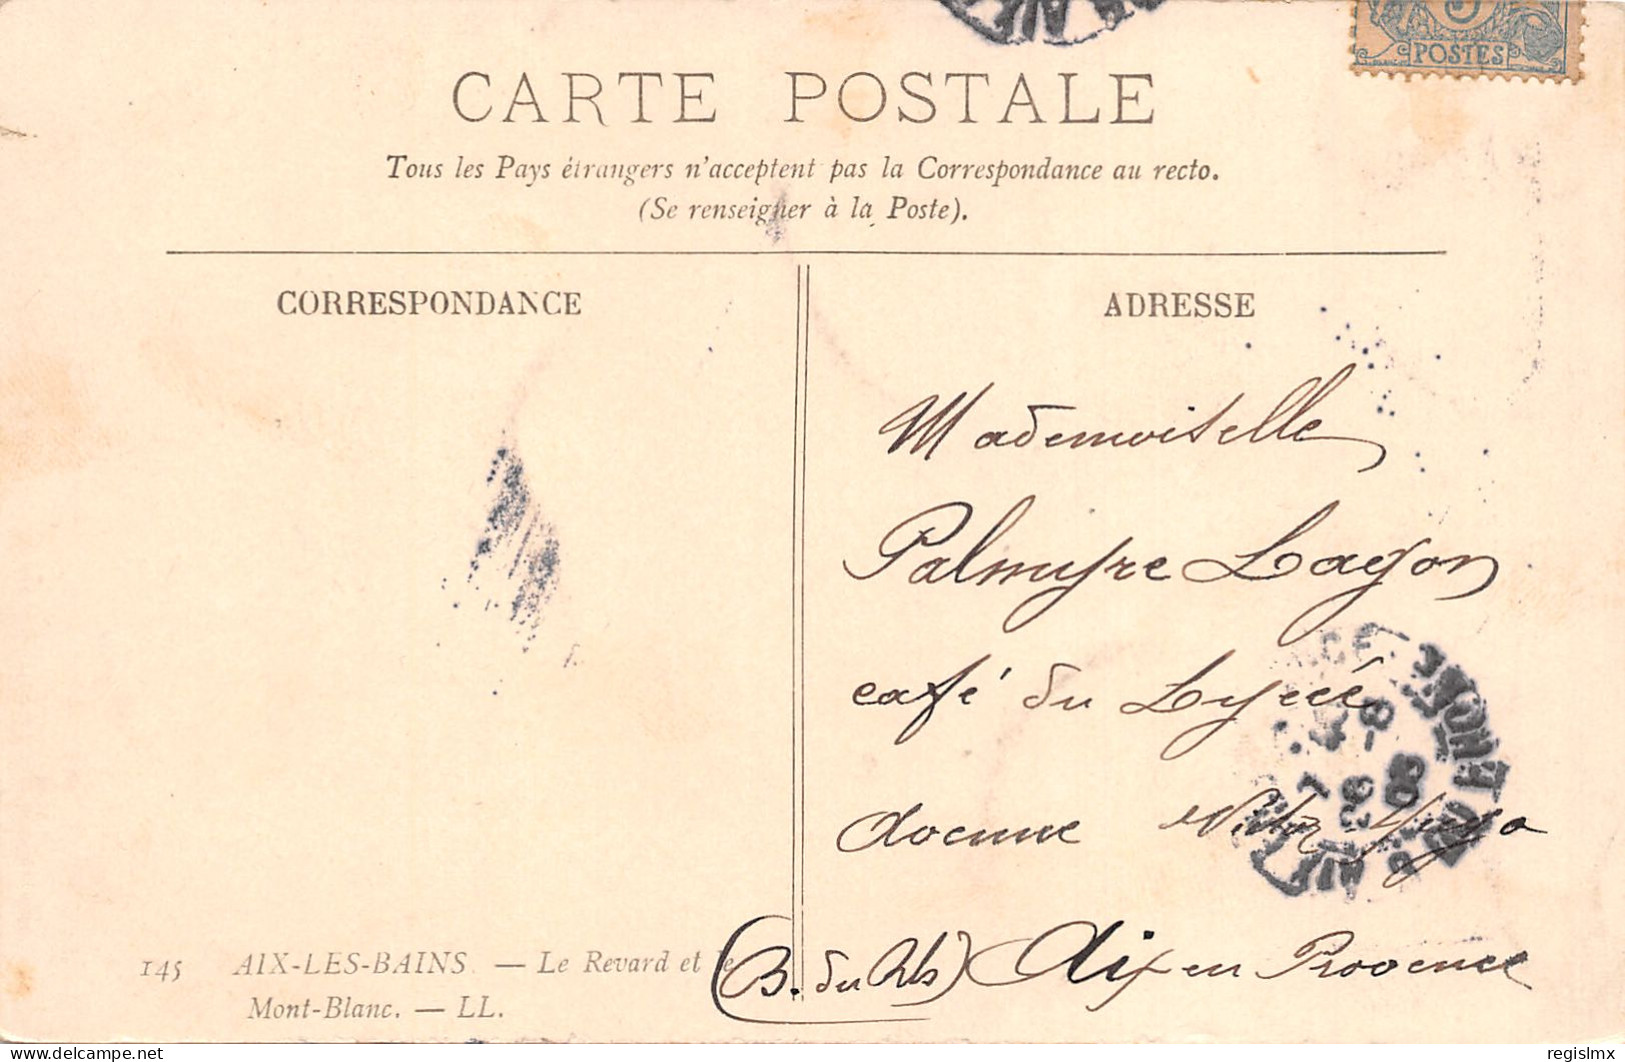 POSTES
CARTE POSTALE
Tous les Pays étrangers n'acceptent pas la Correspondance au recto.
(Se renseigner à la Poste).
CORRESPONDANCE
ADRESSE
Mademoiselle
Palmyre Lagon
café du Lycée
avenue Victor Hugo
(B. du Rh) Aix en Provence
145 AIX-LES-BAINS. — Le Revard et le
Mont-Blanc. — LL.
delcampe.net
regislmx